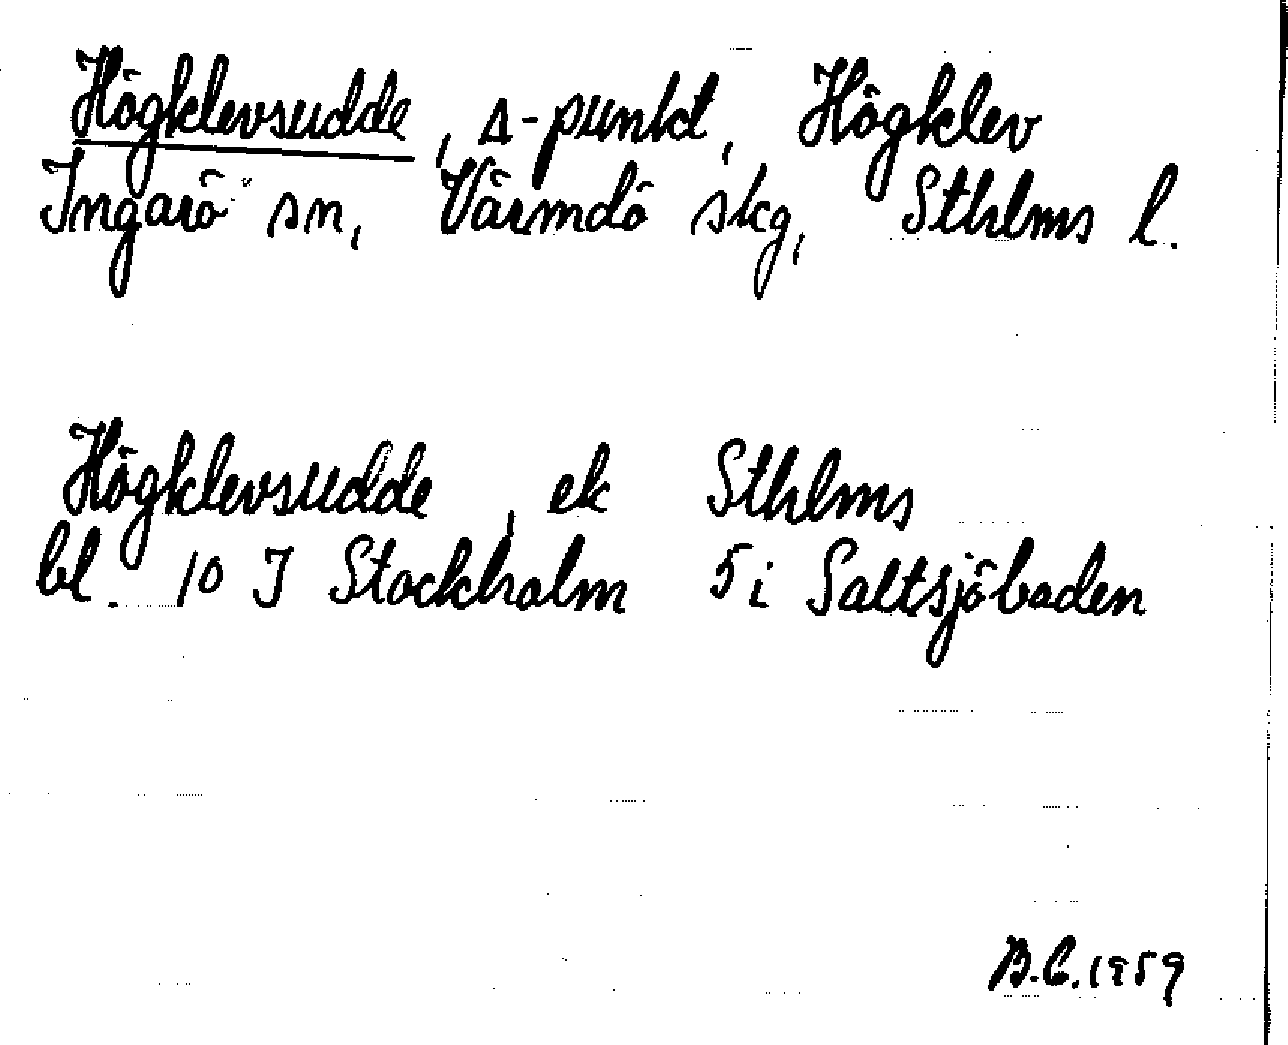 Högklevsudde, Δ-punkt, Högklev
Ingarö sn, Värmdö skg, Sthlms l.
Högklevsudde, ek Sthlms
bl. 10 I Stockholm 5 i Saltsjöbaden
B.C. 1959